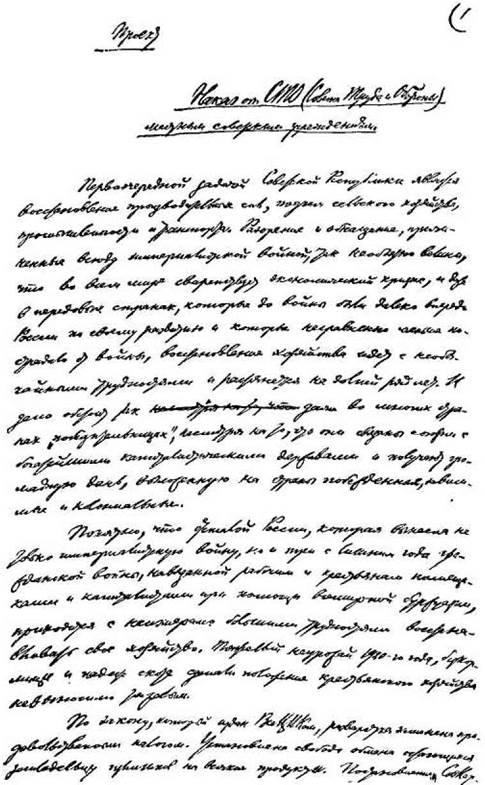 (1
Проект
Наказ от СТО (Совета Труда и Обороны)
местным советским учреждениям.
Первоочередной задачей Советской Республики является
восстановление производительных сил, подъем сельского хозяйства,
промышленности и транспорта. Разорение и обнищание, причи-
ненные всюду империалистской войной, так необъятно велики,
что во всем мире свирепствует экономический кризис, и даже
в передовых странах, которые до войны были далеко впереди
России по своему развитию и которые несравненно меньше по-
страдали от войны, восстановление хозяйства идет с необы-
чайными трудностями и растянется на долгий ряд лет. И
дело обстоит так даже во многих стра-
нах „победительницах“, несмотря на то, что они связаны союзом с
богатейшими капиталистическими державами и получают гро-
мадную дань, на страны побежденные, зависи-
мые и колониальные.
Понятно, что отсталой России, которая вынесла не
только империалистскую войну, но и три с лишним года гра-
жданской войны, навязанной рабочим и крестьянам помещи-
ками и капиталистами при помощи всемирной буржуазии,
приходится с неизмеримо большими трудностями восстана-
вливать свое хозяйство. Тяжелый неурожай 1920-го года, бескор-
мица и падеж скота сделали положение крестьянского хозяйства
невыносимо тяжелым.
По закону, который издан ВЦИКом, разверстка заменена про-
довольственным налогом. Установлена свобода обмена остающихся
у земледельца излишков на всякие продукты. Постановления СовНар-